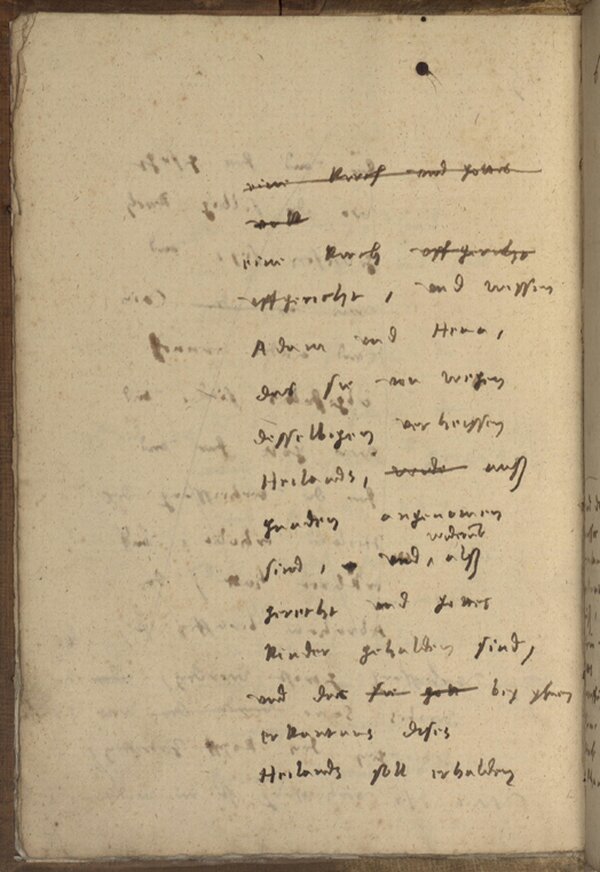 eine Kirch und gottes
volk
eine Kirch auffgericht
auffgericht, und wissen
Adam und Heua,
das sie von wegen
desselbigen verheissen
Heilands, auß
gnaden angenomen
widerumb
sind, und, alß
gerecht und gottes
Kinder gehalden sind,
und das sie gott bey yhnen
erkantnus dises
Heilands soll erhalden